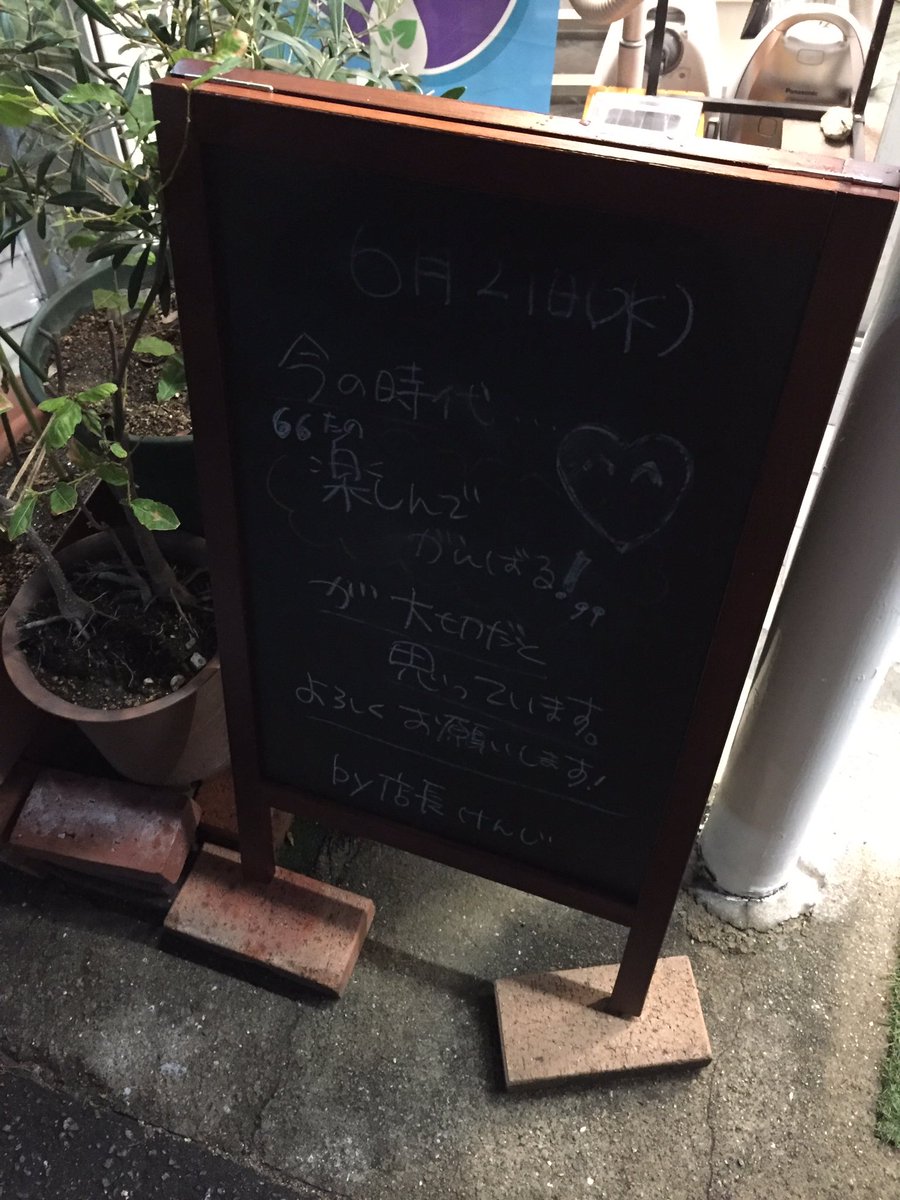 Panasonic
6月21日(水)
今の時代....
“たの
楽しんで
がんばる!”
が大切だと
思っています。
よろしくお願いします!
by店長けんじ